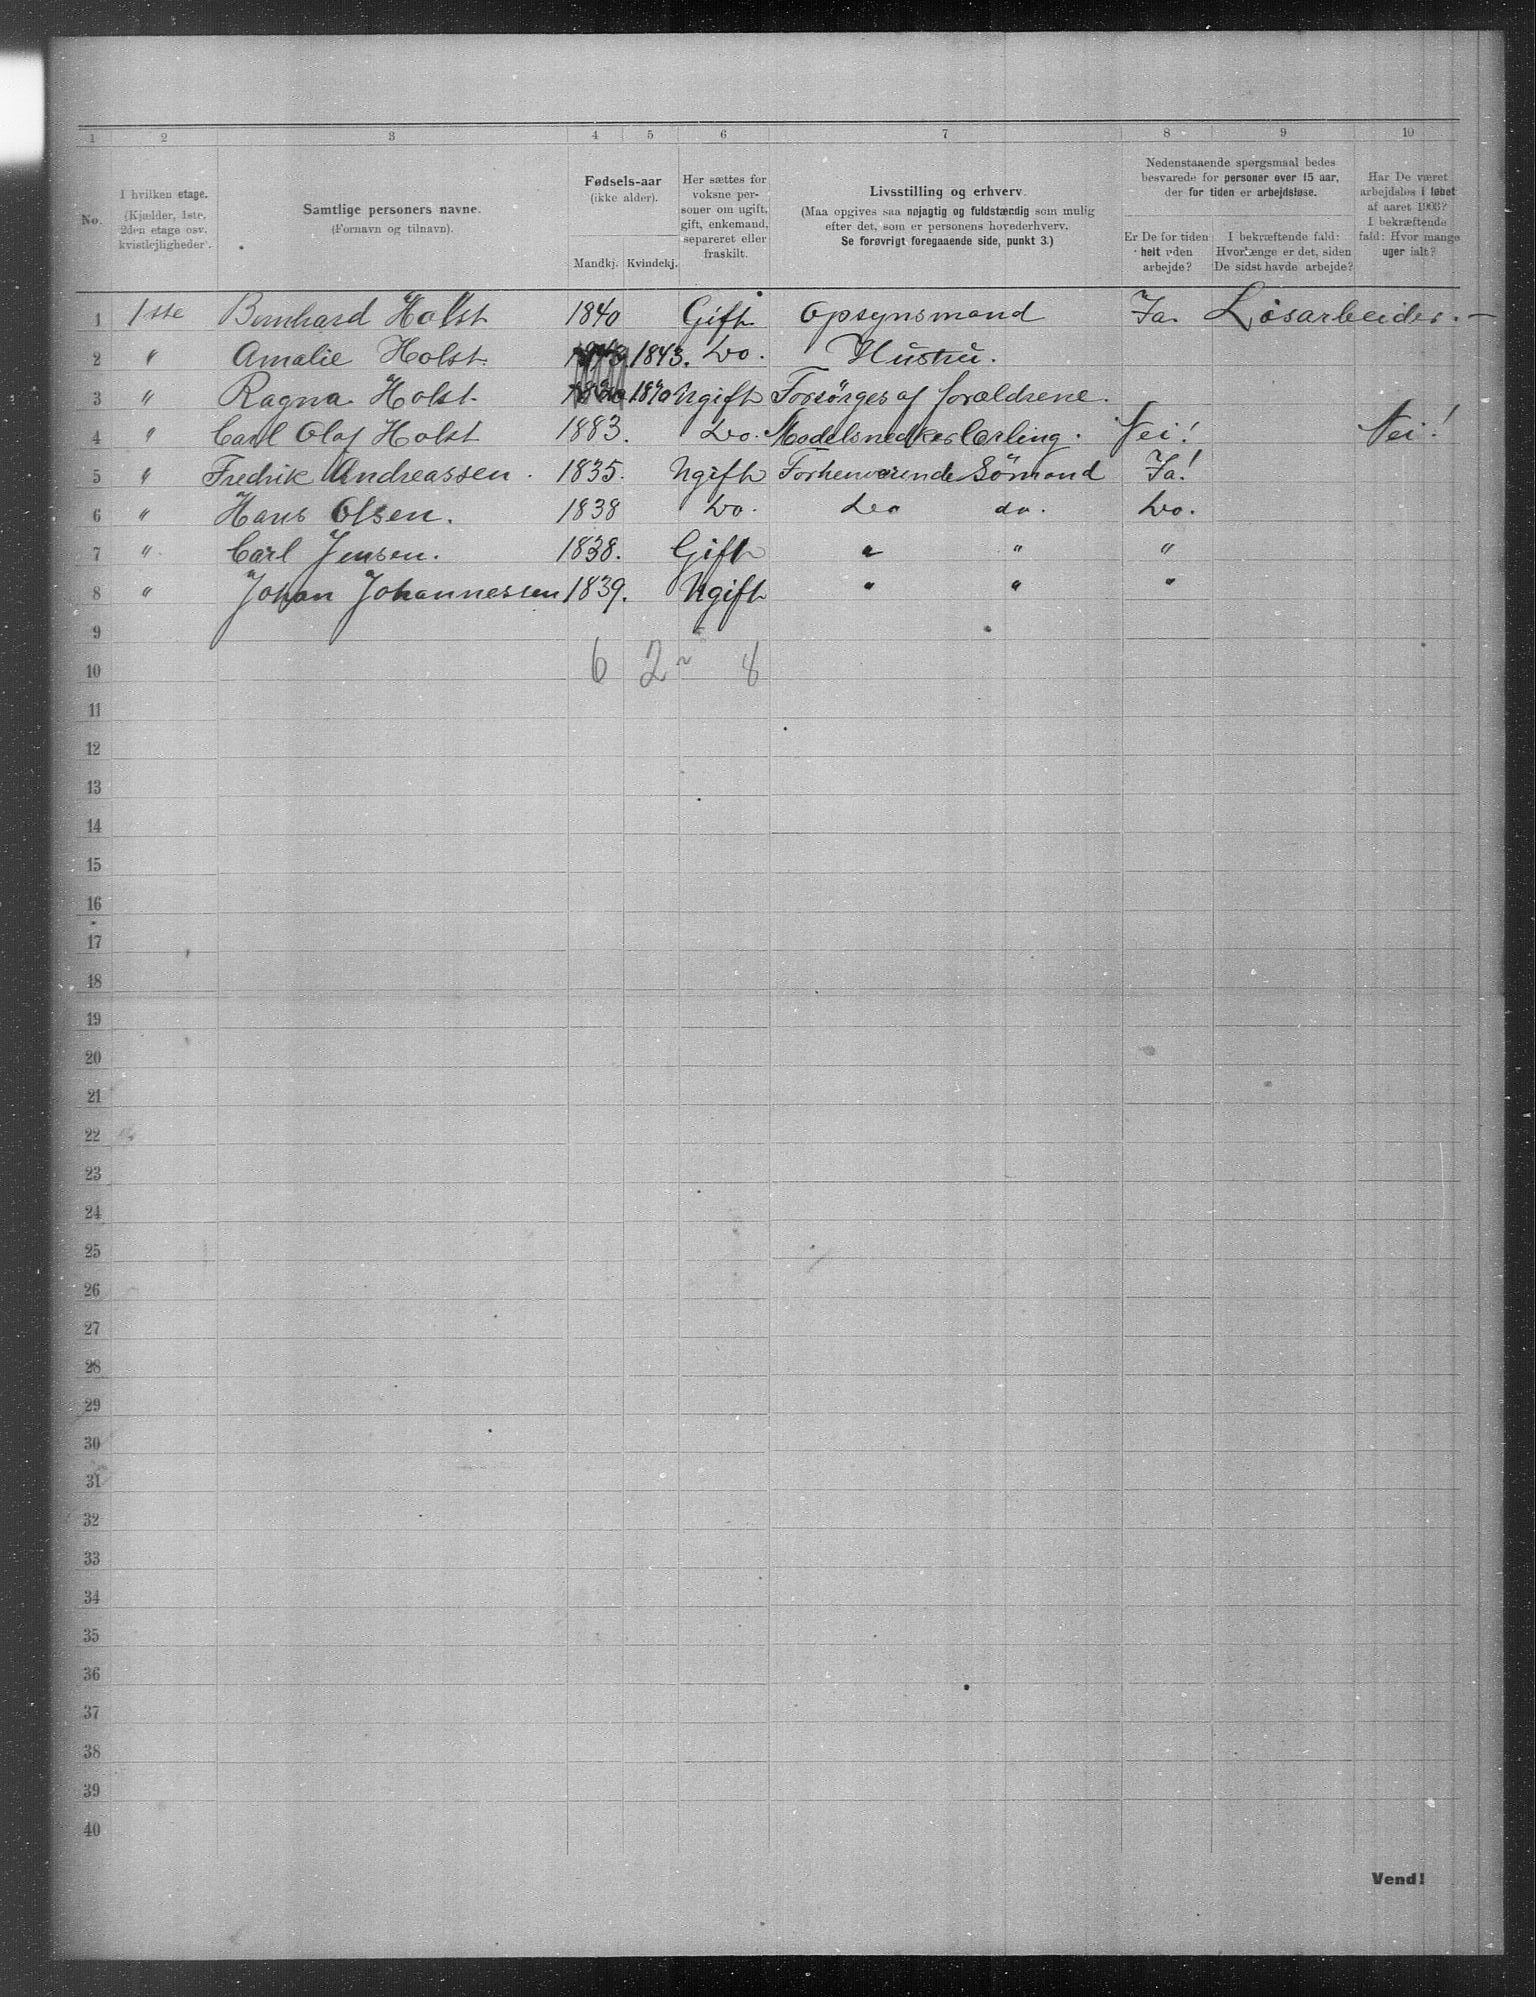 1 2 3 4 5 6 7 8 9 10
No.
I hvilken etage.
(Kjælder, 1ste,
2den etage osv.
kvistlejligheder).
Samtlige personers navne.
(Fornavn og tilnavn).
Fødsels-aar
(ikke alder).
Mandkj. Kvindekj.
Her sættes for
voksne per-
soner om ugift,
gift, enkemand,
separeret eller
fraskilt.
Livsstilling og erhverv.
(Maa opgives saa nøjagtig og fuldstændig som mulig
efter det, som er personens hovederhverv.
Se forøvrigt foregaaende side, punkt 3.)
Nedenstaaende spørgsmaal bedes
besvarede for personer over 15 aar,
der for tiden er arbejdsløse.
Er De for tiden
helt uden
arbejde?
I bekræftende fald:
Hvorlænge er det, siden
De sidst havde arbejde?
Har De været
arbejdsløs i løbet
af aaret 1903?
I bekræftende
fald: Hvor mange
uger ialt?
1 1ste Bernhard Holst 1840 Gift Opsynsmand Ja. Løsarbeider. —
2 " Amalie Holst. 1843. Do. Hustru.
3 " Ragna Holst 1870 Ugift Forsörges af forældrene.
4 " Carl Olaf Holst 1883. Do. Modelsnedkerlærling. Nei! Nei!
5 " Fredrik Andreassen. 1835. Ugift Forhenværende Sömand Ja!
6 " Hans Olsen. 1838 Do. Do do. Do.
7 " Carl Jensen. 1838. Gift " " "
8 " Johan Johannessen 1839. Ugift " " "
9
10 6 2 8
11
12
13
14
15
16
17
18
19
20
21
22
23
24
25
26
27
28
29
30
31
32
33
34
35
36
37
38
39
40
Vend!